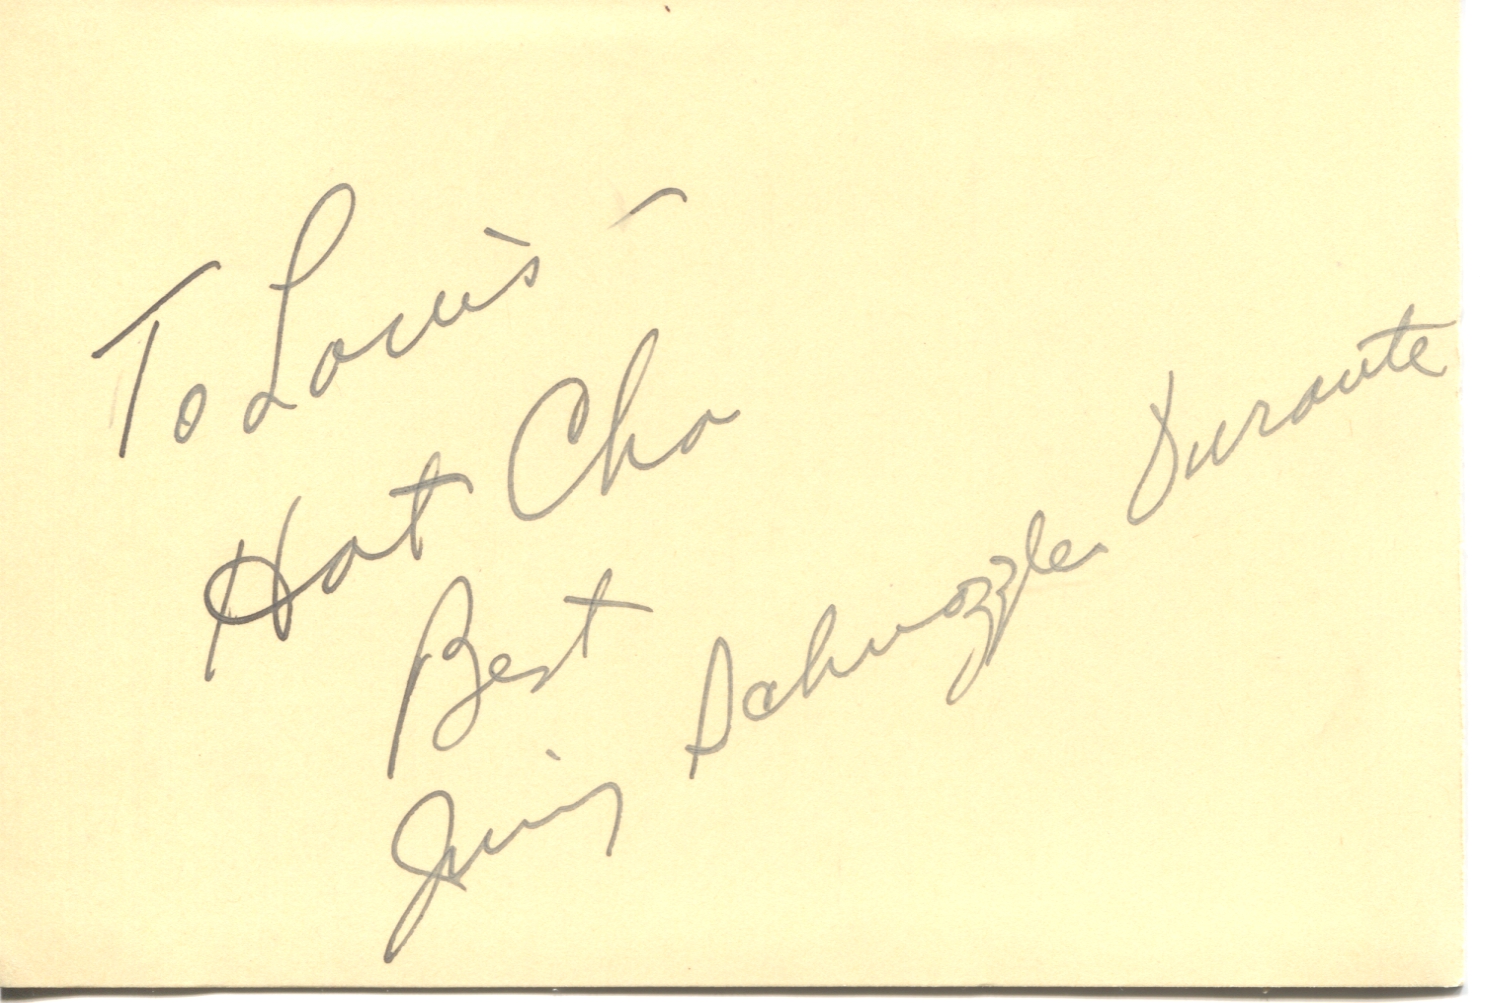 To Louis -
Hot Cha
Best
Jimmy Schnozzle Durante